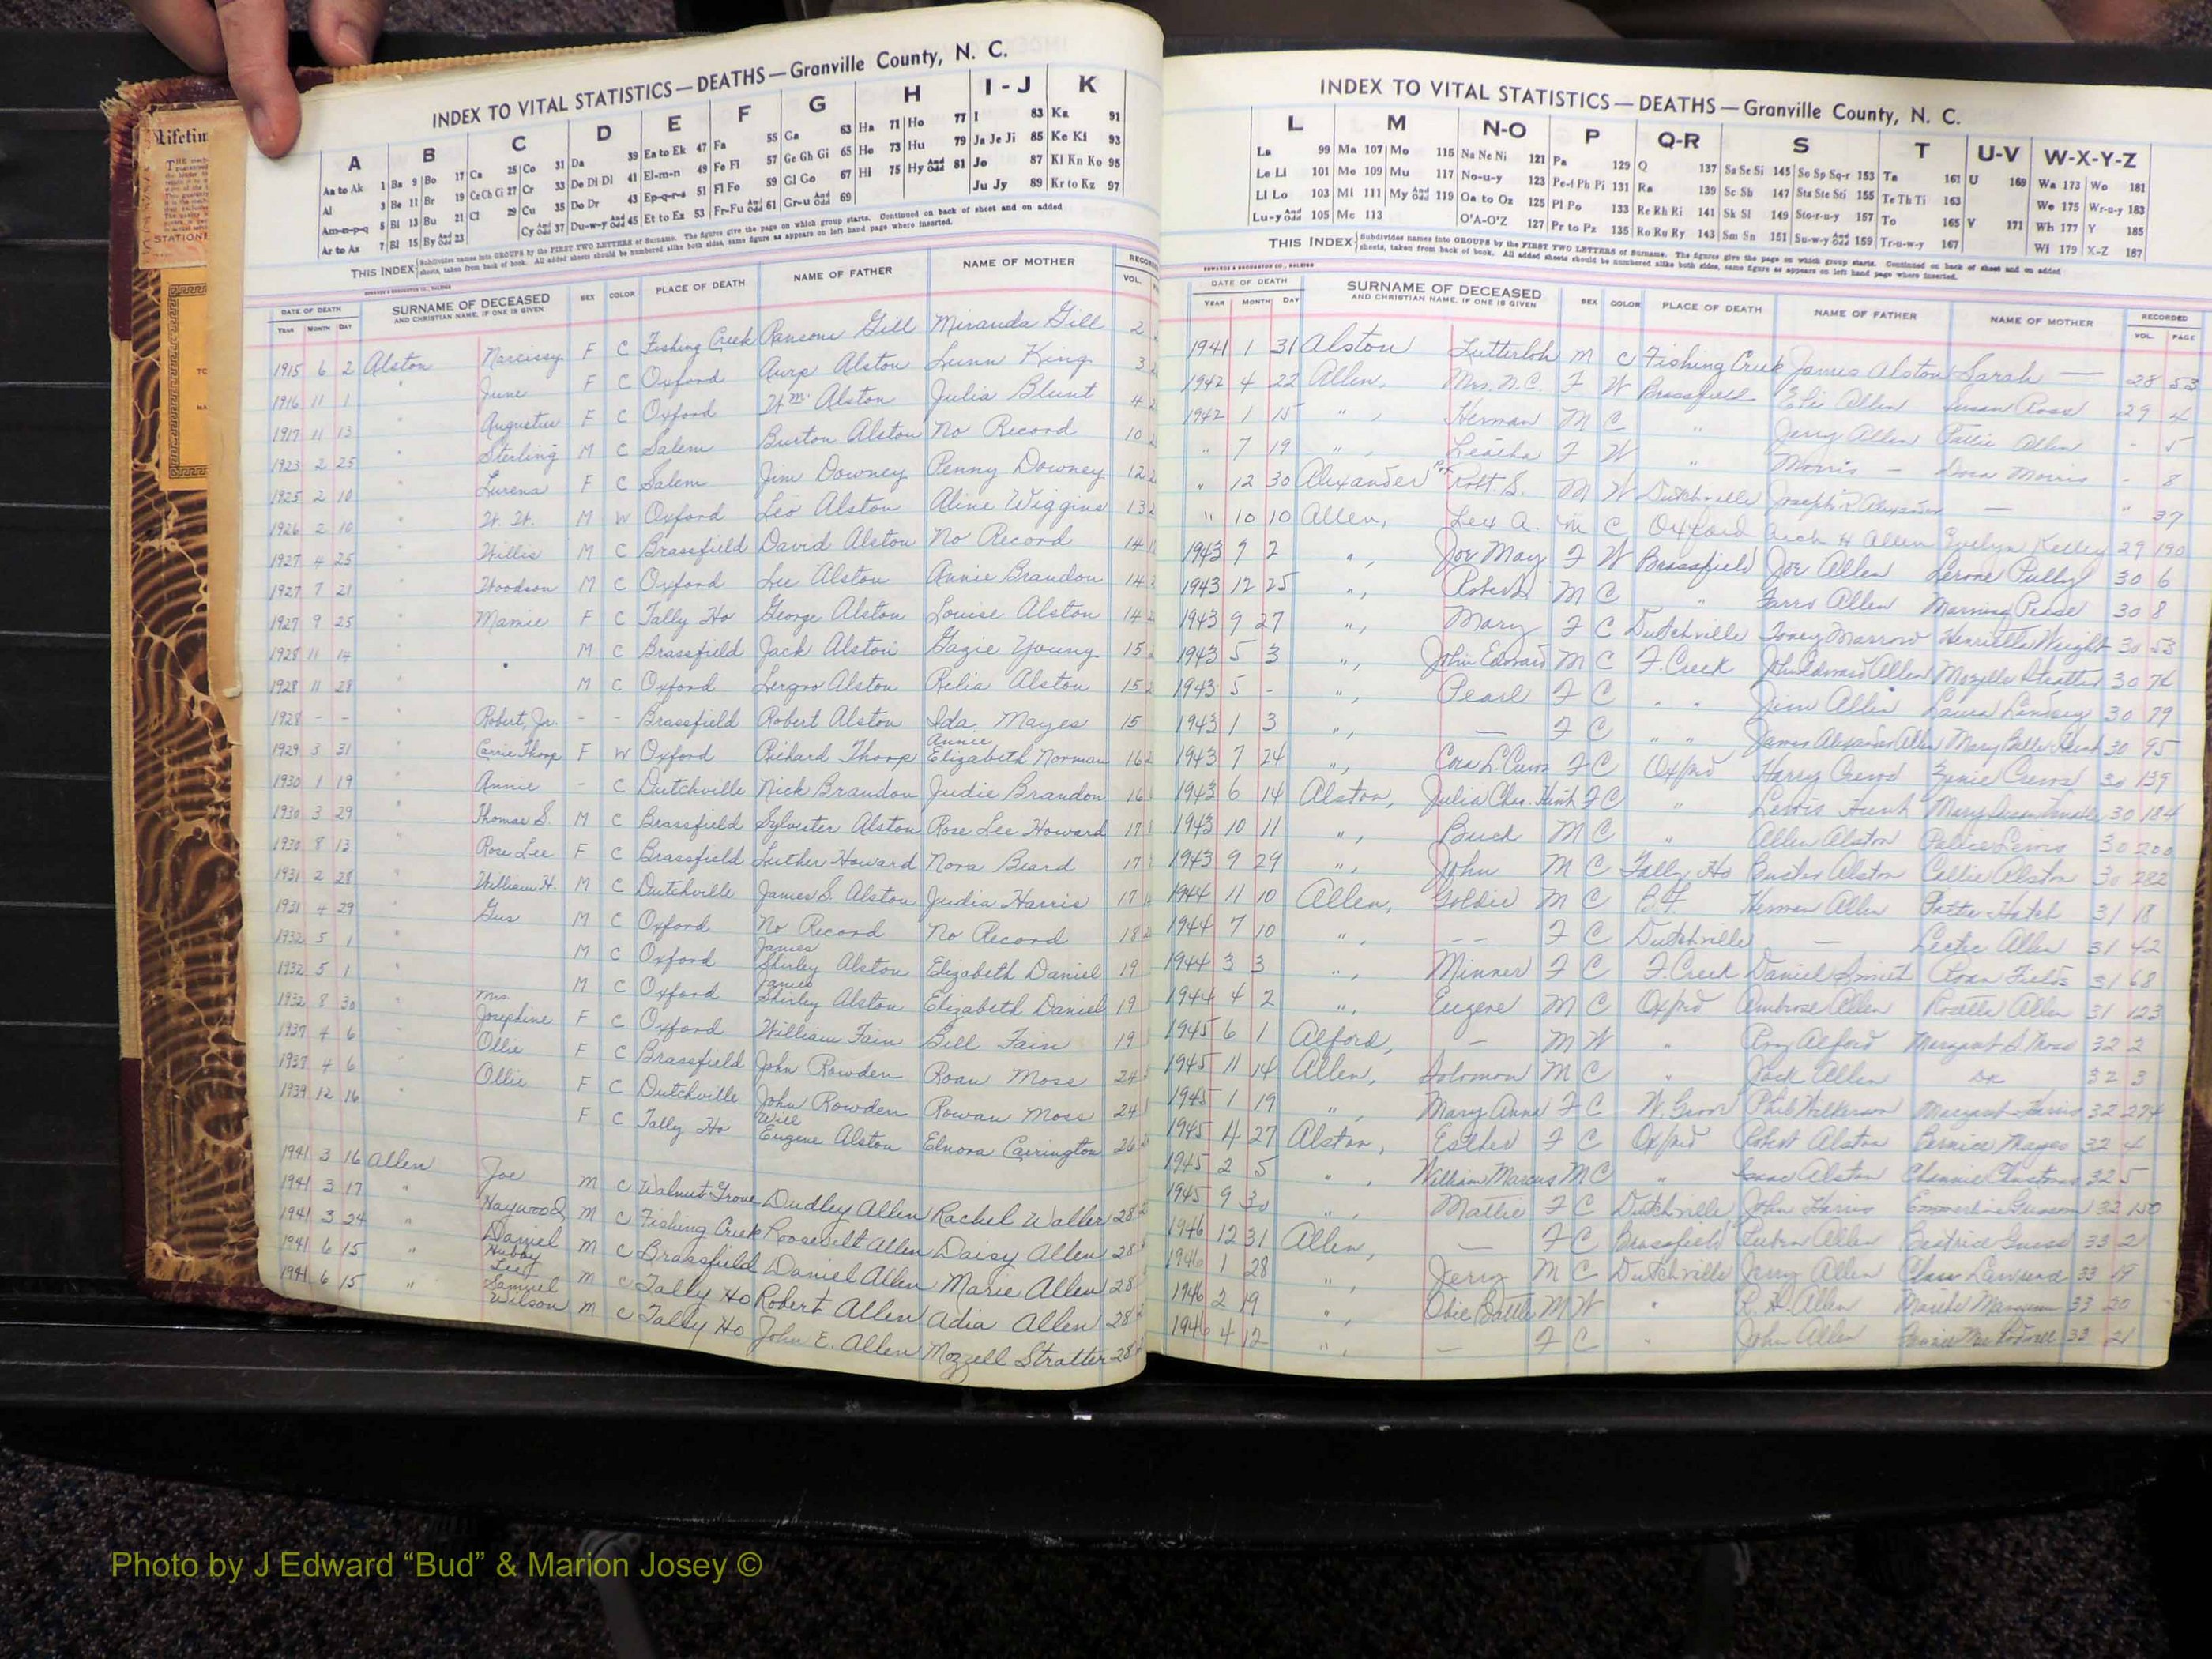 INDEX TO VITAL STATISTICS — DEATHS — Granville County, N. C.
A B C D E F G H I - J K
Aa to Ak 1 Ba 9 Bo 17 Ca 25 Co 31 Da 39 Ea to Ek 47 Fa 55 Ga 63 Ha 71 Ho 77 I 83 Ka 91
Al 3 Be 11 Br 19 Ce Ch Ci 27 Cr 33 De Di Dl 41 El-m-n 49 Fe Fi 57 Ge Gh Gi 65 He 73 Hu 79 Ja Je Ji 85 Ke Ki 93
Am-n-p-q 5 Bi 13 Bu 21 Cl 29 Cu 35 Do Dr 43 Ep-q-r-s 51 Fl Fo 59 Gl Go 67 Hi 75 Hy And Odd 81 Jo 87 Kl Kn Ko 95
Ar to Ax 7 Bl 15 By And Odd 23 Cy And Odd 37 Du-w-y And Odd 45 Et to Ez 53 Fr-Fu And Odd 61 Gr-u And Odd 69 Ju Jy 89 Kr to Kz 97
THIS INDEX Subdivides names into GROUPS by the FIRST TWO LETTERS of Surname. The figures give the page on which group starts. Continued on back of sheet and on added
sheets, taken from back of book. All added sheets should be numbered alike both sides, same figure as appears on left hand page where inserted.
EDWARDS & BROUGHTON CO., RALEIGH
DATE OF DEATH SURNAME OF DECEASED SEX COLOR PLACE OF DEATH NAME OF FATHER NAME OF MOTHER
YEAR MONTH DAY AND CHRISTIAN NAME, IF ONE IS GIVEN VOL.
1915 6 2 Alston Narcissy F C Fishing Creek Ransom Gill Miranda Gill 2
1916 11 1 " June F C Oxford Alston King 3
1917 11 13 " Augustus F C Oxford Wm. Alston Julia Blunt 4
1923 2 25 " Sterling M C Salem Burton Alston No Record 10
1925 2 10 " Lurena F C Salem Jim Downey Penny Downey 12
1926 2 10 " W. W. M W Oxford Leo Alston Aline Wiggins 13
1927 4 25 " Willis M C Brassfield David Alston No Record 14
1927 7 21 " Woodson M C Oxford Lee Alston Annie Brandon 14
1927 9 25 " Mamie F C Tally Ho George Alston Louise Alston 14
1928 11 14 M C Brassfield Jack Alston Young 15
1928 11 28 " M C Oxford Alston Alston 15
1928 - - " Robert, Jr. - - Brassfield Robert Alston Ida Mayes 15
1929 3 31 " Carrie Thorp F W Oxford Richard Thorp Annie Elizabeth Norman 16
1930 1 19 " Annie - C Dutchville Nick Brandon Judie Brandon 16
1930 3 29 " Thomas S. M C Brassfield Sylvester Alston Rose Lee Howard 17
1930 8 13 " Rose Lee F C Brassfield Luther Howard Nora Beard 17
1931 2 28 " William H. M C Dutchville James S. Alston Judia Harris 17
1931 4 29 " Gus M C Oxford No Record No Record 18
1932 5 1 " M C Oxford James Shirley Alston Elizabeth Daniel 19
1932 5 1 " M C Oxford James Shirley Alston Elizabeth Daniel 19
1932 8 30 " Mrs. Josephine F C Oxford William Fain Bell Fain 19
1937 4 6 " Ollie F C Brassfield John Rowden Roan Moss 24
1937 4 6 " Ollie F C Dutchville John Rowden Rowan Moss 24
1939 12 16 " F C Tally Ho Will Eugene Alston Elnora Carrington 26
1941 3 16 Allen Joe M C Walnut Grove Dudley Allen Rachel Waller 28
1941 3 17 " Haywood M C Fishing Creek Roosevelt Allen Daisy Allen 28
1941 3 24 " Daniel M C Brassfield Daniel Allen Marie Allen 28
1941 6 15 " Hubby Lee M C Tally Ho Robert Allen Adia Allen 28
1941 6 15 " Samuel Wilson M C Tally Ho John E. Allen Mozzell Stratter 28
INDEX TO VITAL STATISTICS — DEATHS — Granville County, N. C.
L M N-O P Q-R S T U-V W-X-Y-Z
La 99 Ma 107 Mo 115 Na Ne Ni 121 Pa 129 Q 137 Sa Se Si 145 So Sp Sq-r 153 Ta 161 U 169 Wa 173 Wo 181
Le Li 101 Me 109 Mu 117 No-u-y 123 Pe-f Ph Pi 131 Ra 139 Sc Sh 147 Sta Ste Sti 155 Te Th Ti 163 We 175 Wr-u-y 183
Ll Lo 103 Mi 111 My And Odd 119 Oa to Oz 125 Pl Po 133 Re Rh Ri 141 Sk Sl 149 Sto-r-u-y 157 To 165 V 171 Wh 177 Y 185
Lu-y And Odd 105 Mc 113 O'A-O'Z 127 Pr to Pz 135 Ro Ru Ry 143 Sm Sn 151 Su-w-y And Odd 159 Tr-u-w-y 167 Wi 179 X-Z 187
THIS INDEX Subdivides names into GROUPS by the FIRST TWO LETTERS of Surname. The figures give the page on which group starts. Continued on back of sheet and on added
sheets, taken from back of book. All added sheets should be numbered alike both sides, same figure as appears on left hand page where inserted.
EDWARDS & BROUGHTON CO., RALEIGH
DATE OF DEATH SURNAME OF DECEASED SEX COLOR PLACE OF DEATH NAME OF FATHER NAME OF MOTHER RECORDED
YEAR MONTH DAY AND CHRISTIAN NAME, IF ONE IS GIVEN VOL. PAGE
1941 1 31 Alston Lutterloh M C Fishing Creek James Alston Sarah — 28 53
1942 4 22 Allen, Mrs. N.C. F W Brassfield Eli Allen Susan Ross 29 4
1942 1 15 " , Herman M C " Jerry Allen Pattie Allen - 5
" 7 19 " , F W " Morris — Dora Morris - 8
" 12 30 Alexander Robt. S. M W Dutchville Joseph R Alexander — " 37
" 10 10 Allen, Lex A. M C Oxford Arch H Allen Evelyn Kelley 29 190
1943 9 2 " Joe May F W Brassfield Joe Allen Lerone Pully 30 6
1943 12 25 ", Robert M C " Allen Morning Pease 30 8
1943 9 27 ", Mary F C Dutchville Toney Marrow Henrietta Wright 30 53
1943 5 3 ", John Edward M C F. Creek John Edward Allen Mozelle Stratter 30 76
1943 5 - ", Pearl F C " " Jim Allen Laura Lindsey 30 79
1943 1 3 ", — F C " " James Alexander Allen Mary Belle Hunt 30 95
1943 7 24 ", Cora L. Crews F C Oxford Harry Crews Zenie Crews 30 139
1943 6 14 Alston, Julia Chas. Hunt F C " Lewis Hunt Mary Susan 30 184
1943 10 11 ", Buck M C " Allen Alston Lewis 30 200
1943 9 29 ", John M C Tally Ho Buster Alston Callie Alston 30 282
1944 11 10 Allen, Goldie M C B.F. Herman Allen Pattie Hatch 31 18
1944 7 10 ", -- F C Dutchville — Allen 31 42
1944 3 3 ", Minner F C F. Creek Daniel Smith Roan Fields 31 68
1944 4 2 ", Eugene M C Oxford Ambrose Allen Rosette Allen 31 123
1945 6 1 Alford, — M W " Alford Margaret S Moss 32 2
1945 11 14 Allen, Solomon M C " Jack Allen DK 32 3
1945 1 19 ", Mary Anna F C W. Grove Phil Wilkerson Margaret Harris 32 274
1945 4 27 Alston, Esther F C Oxford Robert Alston Bernice Mayes 32 4
1945 2 5 " , William Marcus M C " Isaac Alston 32 5
1945 9 30 " , Mattie F C Dutchville John Harris 32 150
1946 12 31 Allen, — F C Brassfield Allen Beatrice Guess 33 2
1946 1 28 ", Jerry M C Dutchville Jerry Allen Clara 33 19
1946 2 19 ", Obie Battle M W " R. H. Allen 33 20
1946 4 12 ", — F C " John Allen 33 21
Photo by J Edward “Bud” & Marion Josey ©